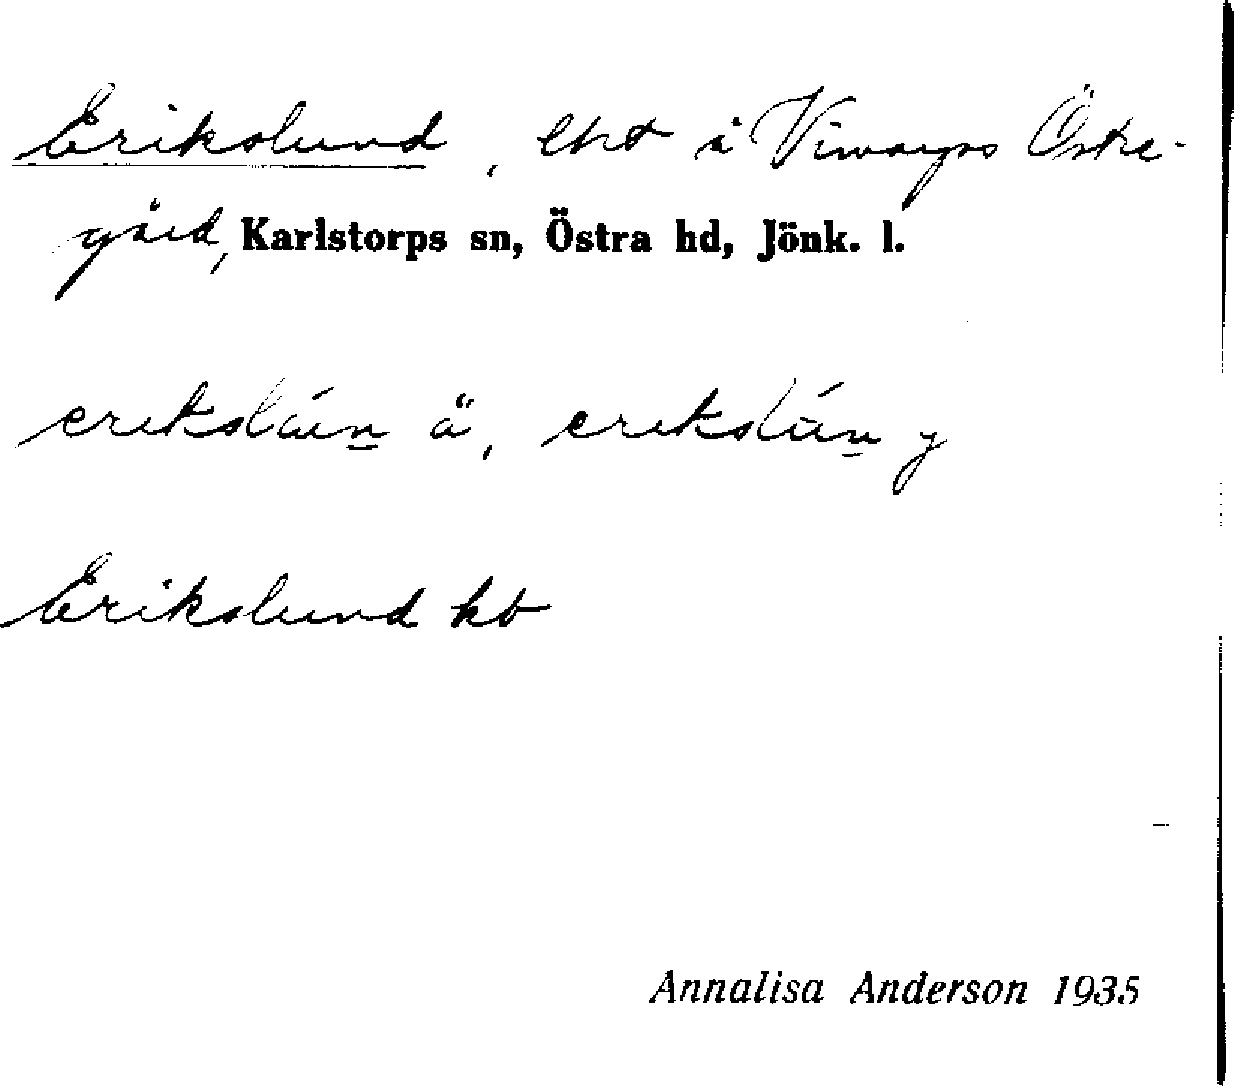 Erikslund, lht i Vinarps Östra-
gård, Karlstorps sn, Östra hd, Jönk. l.
erikslún y
Erikslund kb
Annalisa Anderson 1935